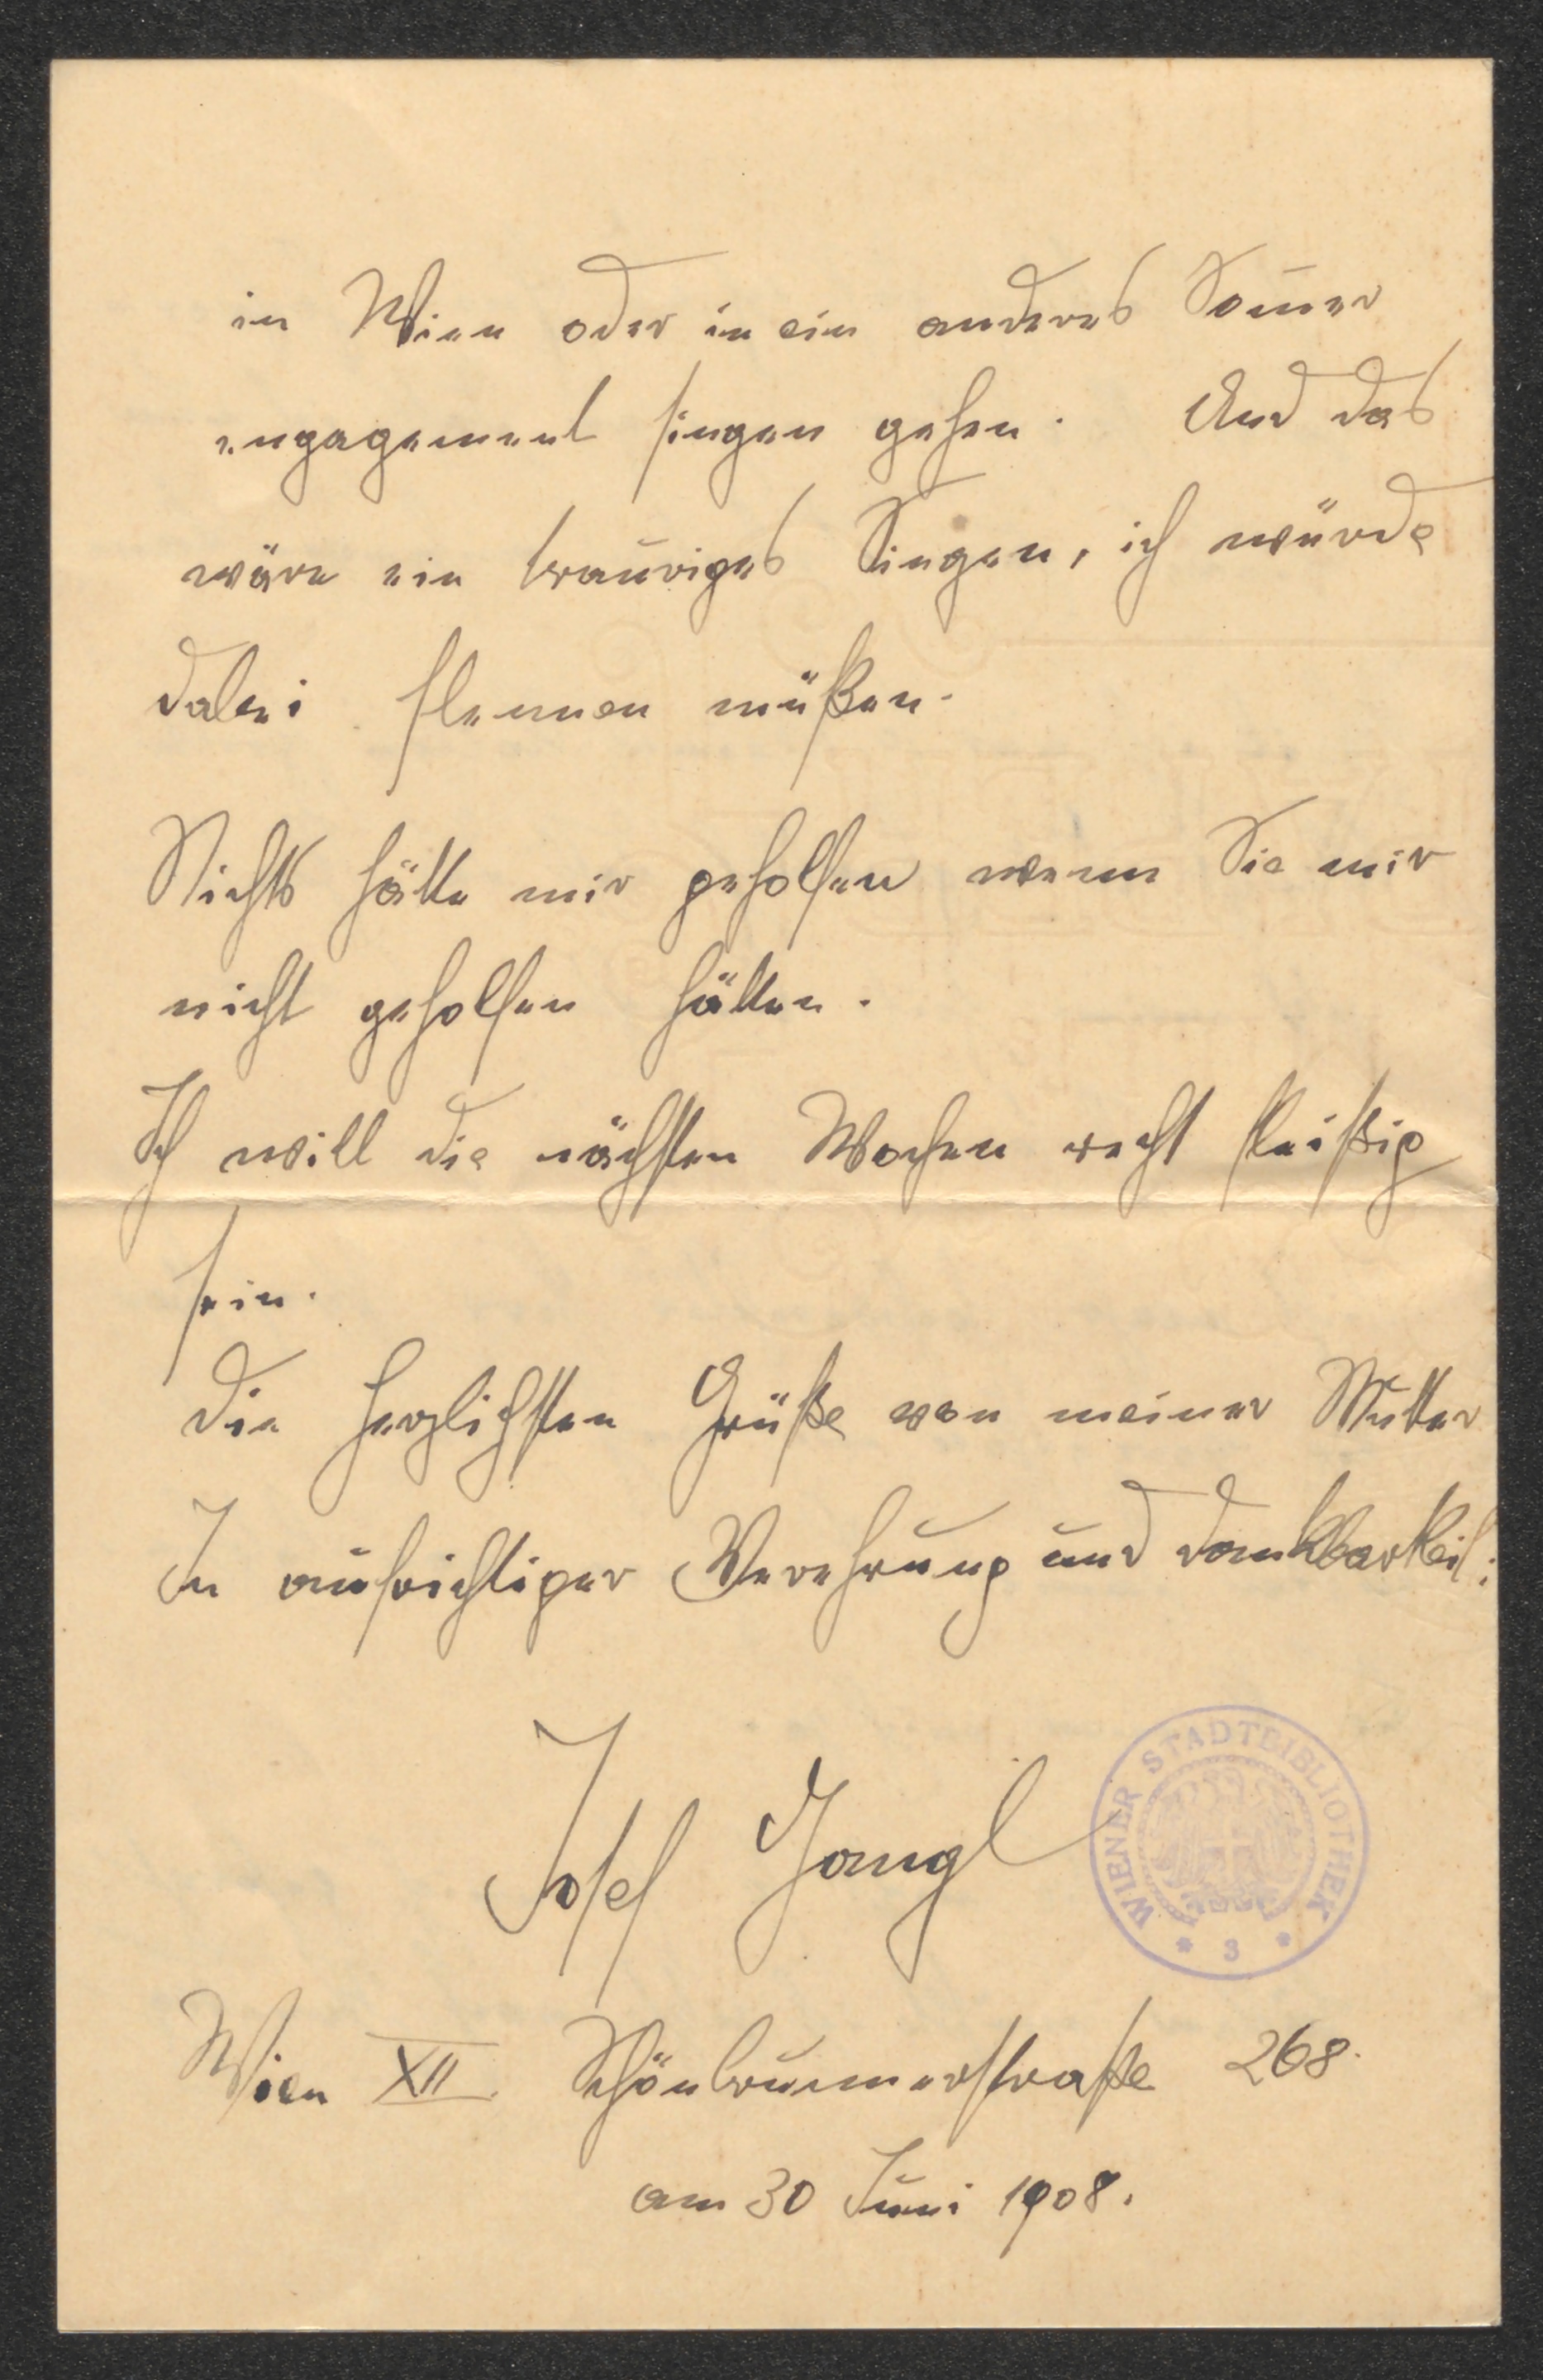 in Wien oder in ein anderes Som̅er
engagement singen gehen. Und das
wäre ein trauriges Singen, ich würde
dabei flennen müßen.
Nichts hätte mir geholfen wenn Sie mir
nicht geholfen hätten.
Ich will die nächsten Wochen recht fleißig
sein.
Die herzlichsten Grüße von meiner Mutter
In aufrichtiger Verehrung und Dankbarkeit:
Josef
WIENER STADTBIBLIOTHEK
* 3 *
Wien XII. Schönbrunnerstraße 268.
am 30 Juni 1908.